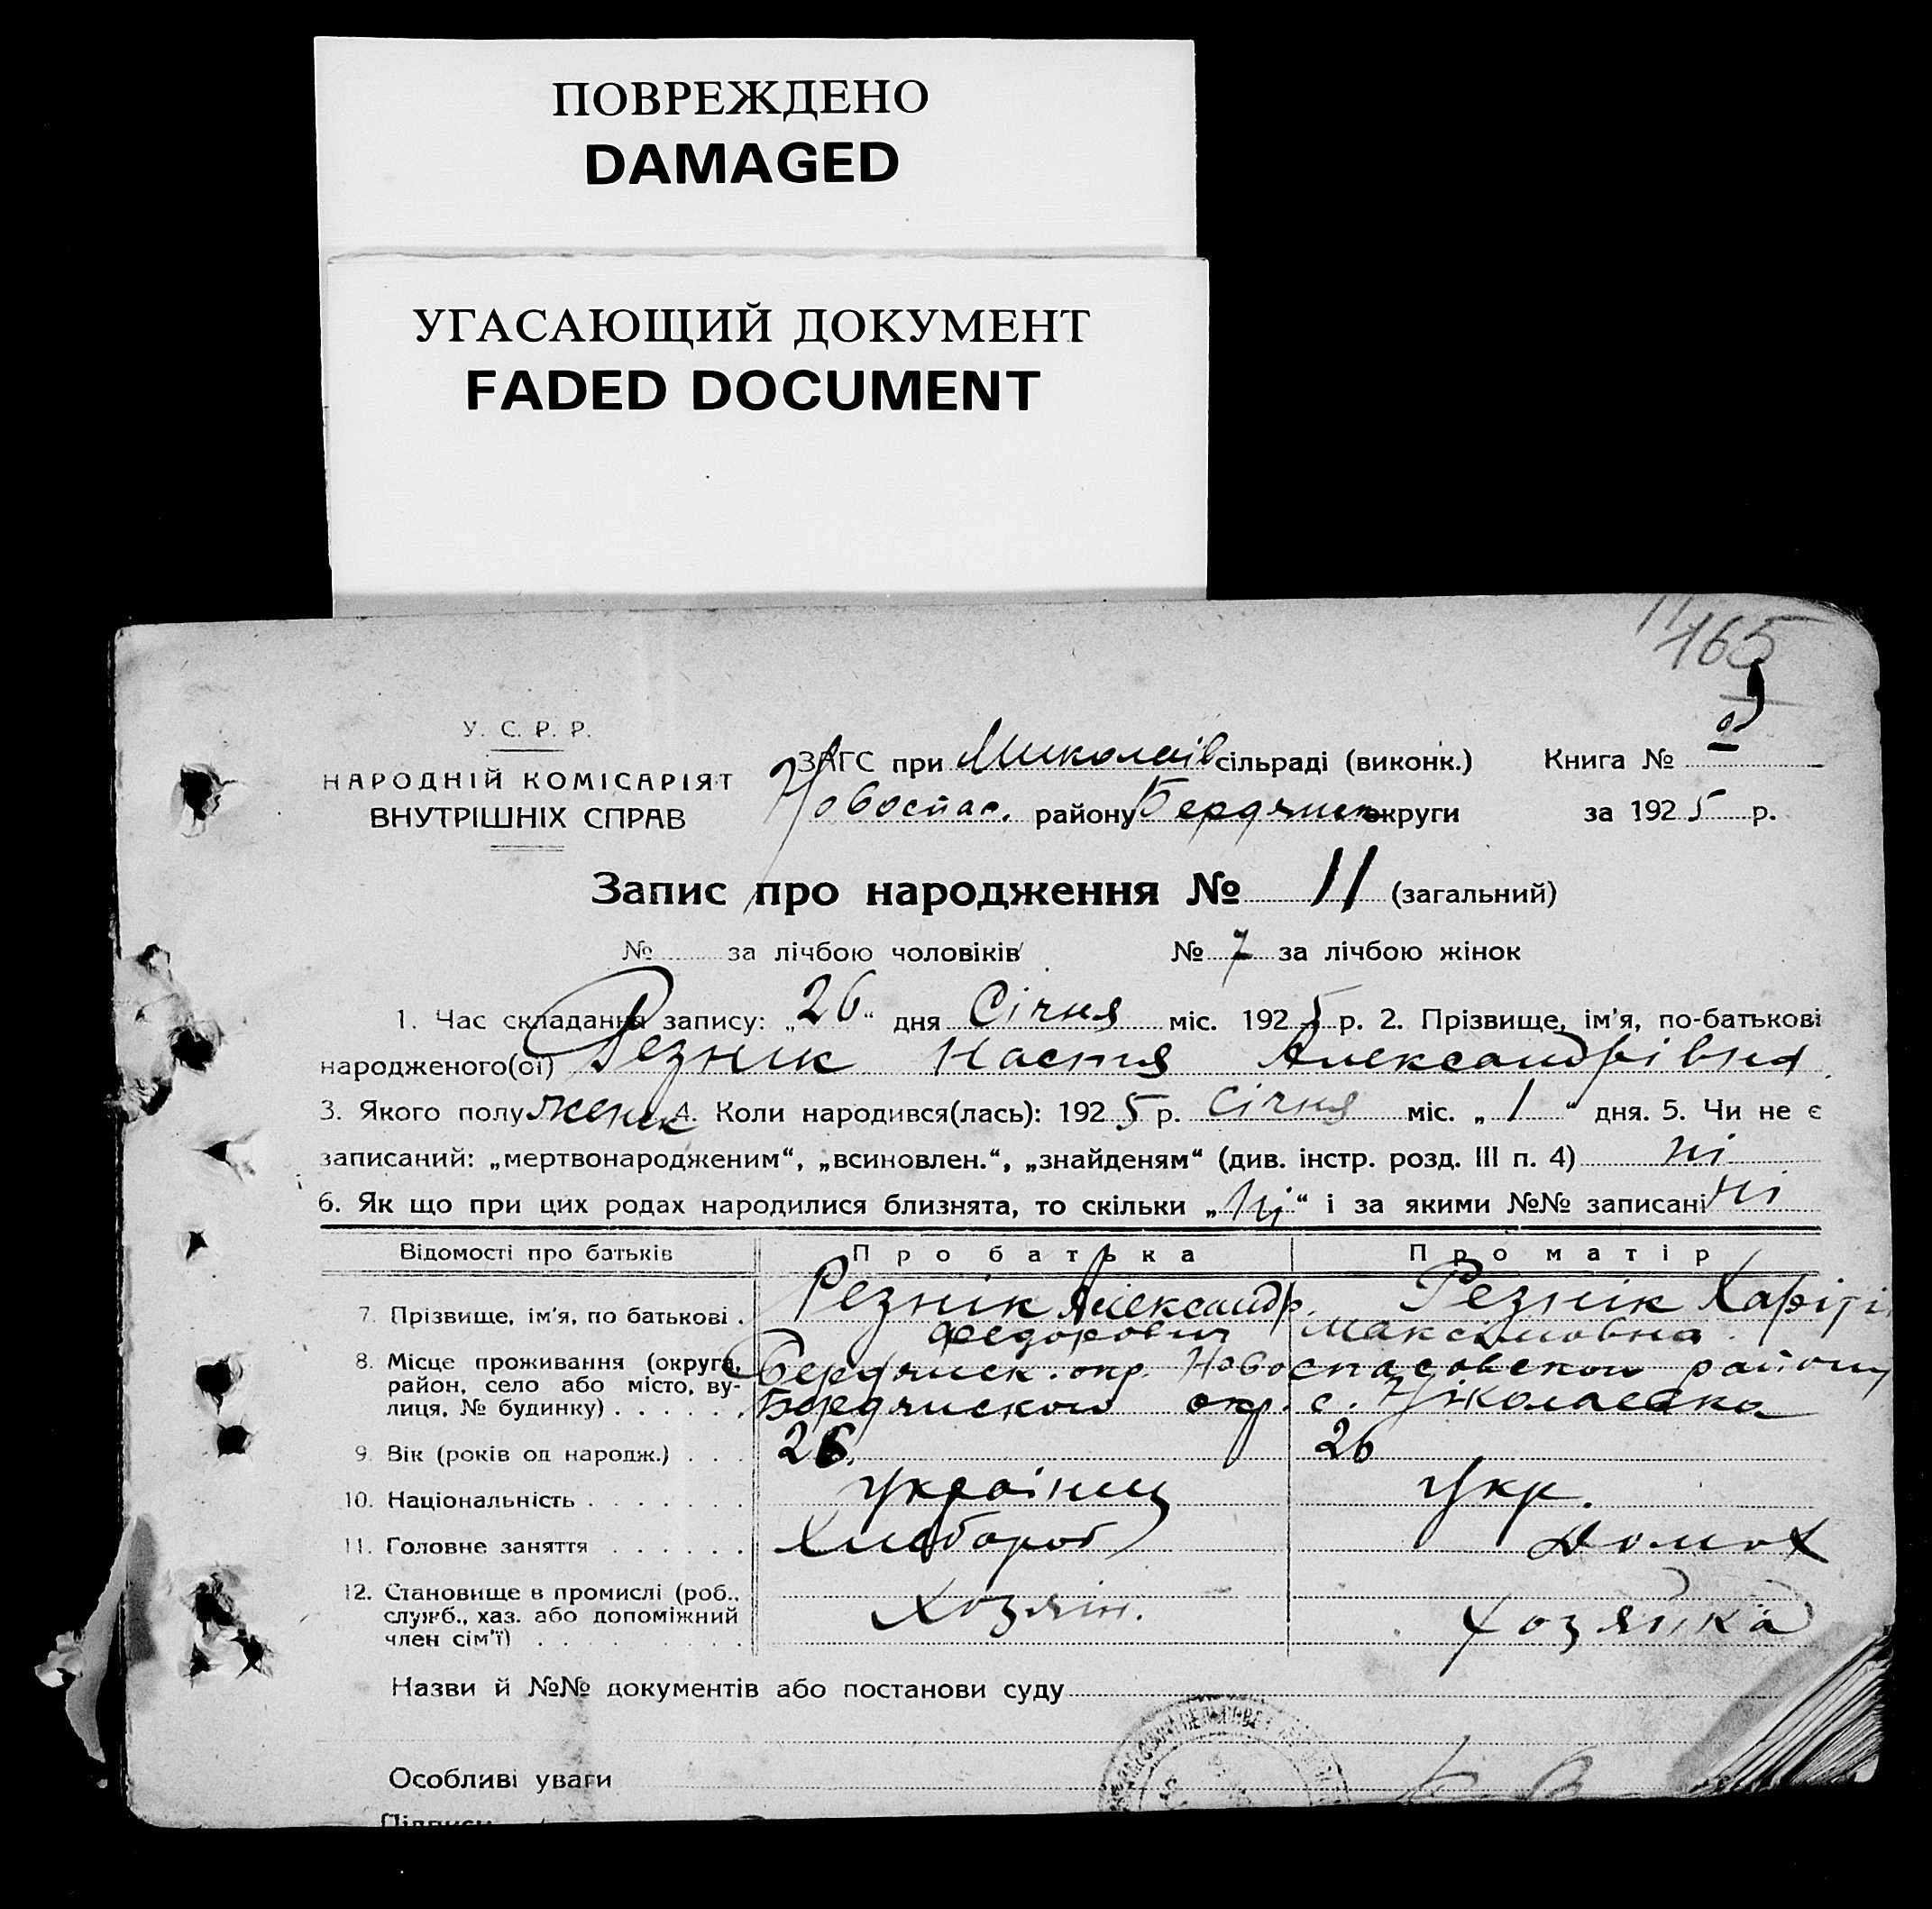 ПОВРЕЖДЕНО
DAMAGED
УГАСАЮЩИЙ ДОКУМЕНТ
FADED DOCUMENT
11
165
У. С. Р. Р.
НАРОДНІЙ КОМІСАРІЯТ
ВНУТРІШНІХ СПРАВ
ЗАГС при Миколаїв сільраді (виконк.) Книга №
Новоспас. району Бердянск округи за 1925 р.
Запис про народження № 11 (загальний)
№ за лічбою чоловіків № 7 за лічбою жінок
1. Час складання запису: „26“ дня Січня міс. 1925 р. 2. Прізвище, ім'я, по-батькові
народженого(ої) Резник Настя Александрівна
3. Якого полу женск 4. Коли народився(лась): 1925 р. січня міс. „1“ дня. 5. Чи не є
записаний: „мертвонародженим“, „всиновлен.“, „знайденям“ (див. інстр. розд. III п. 4) ні
6. Як що при цих родах народилися близнята, то скільки „ні“ і за якими №№ записані ні
Відомості про батьків Про батька Про матір
7. Прізвище, ім'я, по батькові . Резнік Александр. Резнік Харіті
Федорович Максімовна.
8. Місце проживання (округа, район, село або місто, вулиця, № будинку) . . . . . . Бердянск. окр. Новоспасовского району
Бердянского окр. с. Ніколаевка
9. Вік (років од народж.) . . . 26. 26
10. Національність . . . . . . . українец Укр.
11. Головне заняття . . . . . . Хлебороб Домох
12. Становище в промислі (роб.,
служб., хаз. або допоміжний
член сім'ї) . . . . . . . . . Хозяін. хозяйка
Назви й №№ документів або постанови суду
Особливі уваги
Підписи